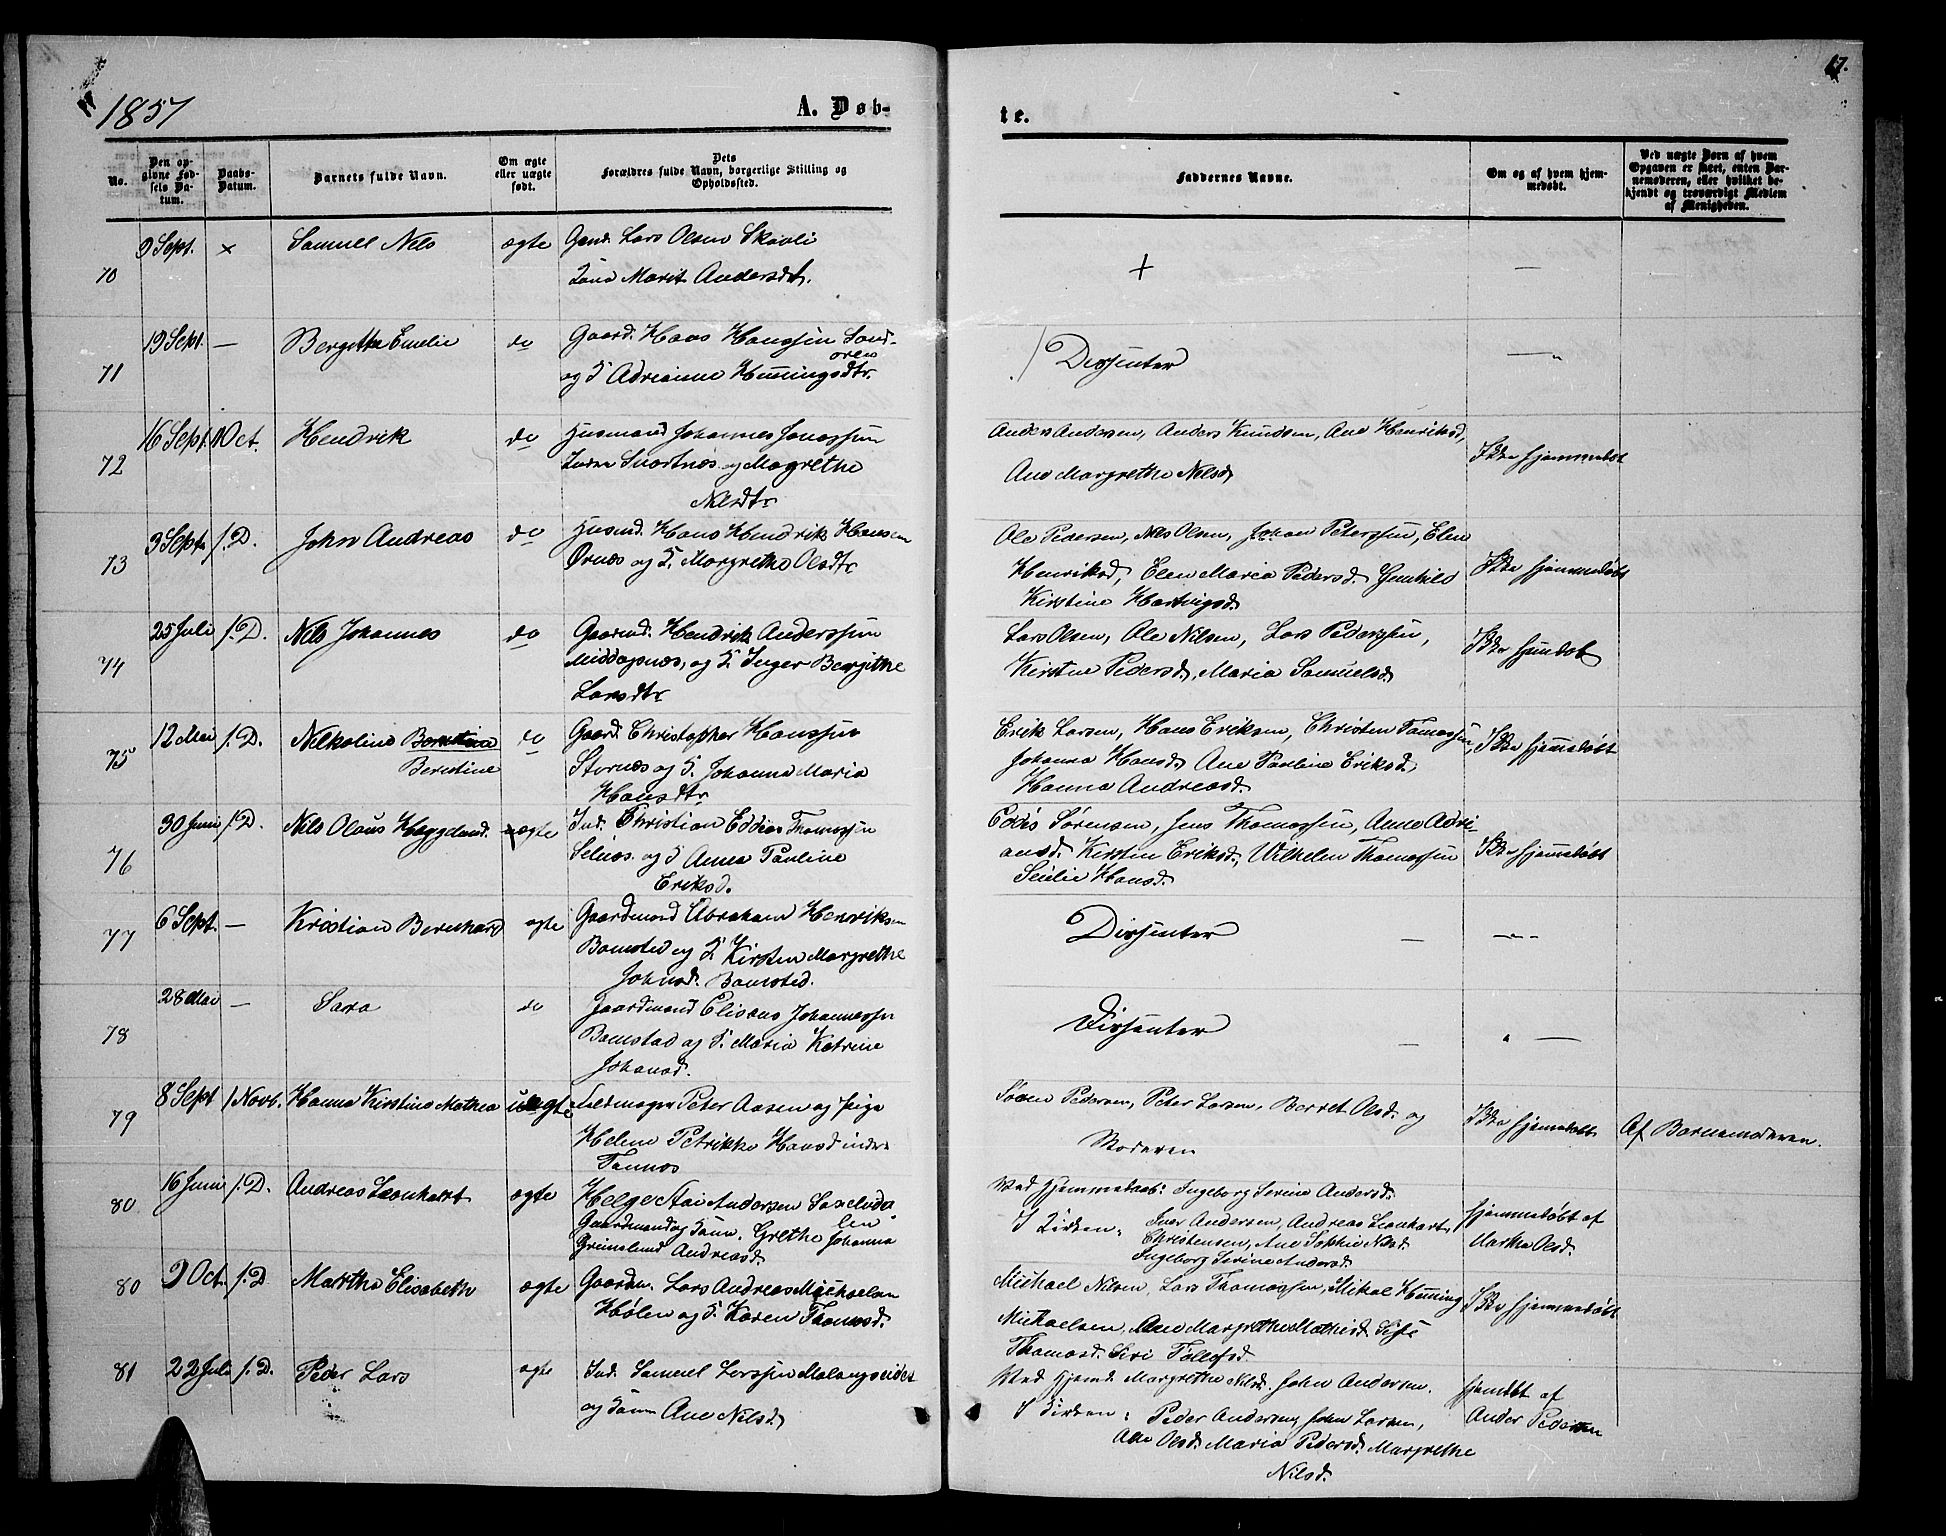 1857
A. Døb-
te.
17.
No.
Den op-
givne Fød-
sels Da-
tum.
Daabs-
Datum.
Barnets fulde Navn.
Om ægte
eller uægte
født.
Dets
Forældres fulde Navn, borgerlige Stilling og
Opholdssted.
Faddernes Navne.
Om og af hvem hjem-
medøbt.
Ved uægte Børn af hvem
Opgaven er skeet, enten Bar-
nemoderen, eller hvilket be-
kjendt og troværdigt Medlem
af Menigheden.
70 9 Sept. × Samuel Nils ægte Gmd. Lars Olsen Skavli
Marit Andersdt.
+ —
71 19 Sept. — Bergitha Emelie do Gaard. Hans Hanssen Sand-
øren
og K Adrianne Hemingsdtr.
Dissenter
72 16 Sept. 1 Oct. Hendrik do Husmand Johannes Jonassen
Indre Svartnæs og Magrethe
Nilsdtr
Anders Andersen, Anders Knudsen, Ane Henriksd,
Ane Margrethe Nilsd,
Ikke hjemmedøbt
73 3 Sept. s. D. John Andreas do Husmd. Hans Hendrik Hansen
Ørnæs og K. Margrethe Olsdtr
Ole Pedersen, Nils Olsen, Johan Peterssen, Elen
Henriksd, Elen Maria Pedersd. Gunhild
Kirstine Hartvigsd.
Ikke hjemmedøbt
74 25 Juli s. D. Nils Johannes do Gaarmd. Hendrik Anderssen
Middagsnæs, og K. Inger Bergithe
Larsdtr
Lars Olsen, Ole Nilsen, Lars Pederssen,
Kirsten Pedersd, Maria Samuelsd.
Ikke hjemdøbt
75 12 Mai s. D. Nilkoline Berntine do Gaard. Christopher Hanssen
Berntine
Stornæs og K. Johanna Maria
Hansdtr
Erik Larsen, Hans Eriksen, Christen Tomassen,
Johanna Hansd. Ane Pauline Eriksd,
Hanna Andreasd.
Ikke hjemedøbt
76 30 Juni s. D. Nils Olaus Heggelund. ægte Ind. Christian Eddias Thomassen
Selnæs og K Anna Pauline
Eriksd.
Eddis Sørensen, Jens Thomassen, Anne Adri-
ansd. Kirsten Eriksd, Wilhelm Thomassen
Seselie Hansd.
Ikke hjemedøbt
77 6 Sept. — Kristian Bernhard ægte Gaardmand Abraham Henriksen
Bomsted og K Kirsten Margrethe
Johnsd. Bomsted.
Dissenter —
78 28 Mai — Sara do Gaardmand Elisæus Johannessen
Bomstad og K. Maria Katrine
Johansd.
Dissenter —
79 8 Sept 1 Novb. Hanna Kirstine Mathea uægte Peter Aasen og Pige
Helene Petrikke Hansd indre
Tamnæs
Søren Pedersen, Peter Larsen, Berret Olsd. og
Moderen
Ikke hjemedøbt
Af Barnemoderen.
80 16 Juni s. D. Andreas Leonhart ægte Helge Andersen
Gaardmand og Grethe Johanna
Andreasd.
Ved Hjemmedaab: Ingeborg Serine Andersd.
I Kirken: Iver Andersen, Andreas Leonhart
Christensen, Ane Sophie Nilsd.
Ingeborg Serine Andersd.
Hjemmedøbt af
Martha Olsd.
80 9 Oct. s. D Martha Elisabeth ægte Gaardm. Lars Andreas Michaelsen
Hølen og K Karen Thomasd.
Michael Nilsen, Lars Thomassen, Mikal Heming
Michaelsen, Ane Margrethe Mathisd.
Thomasd. Siri Tollefsd.
Ikke hjemmedøbt
81 22 Juli s. D. Peder Lars ægte Ind. Samuel Larssen Malangseidet
og Ane Nilsd,
Ved Hjemd. Margrethe Nilsd. John Andersen.
I Kirken: Peder Andersen, John Larsen,
Olsd. Maria Pedersd. Margrethe
Nilsd.
hjemdøbt af
Ander Pedersen